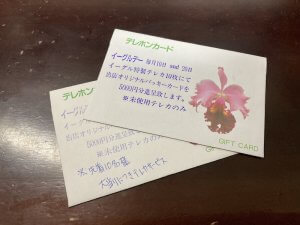 テレホンカード
イーグルデー 毎月10日 and 20日
イーグル特製テレカ10枚にて
当店オリジナルバッキーカードを
5000円分進呈致します。
※未使用テレカのみ
GIFT CARD
テレホン
イーグル
イーグル特製テ
当店オリジナル
5000円分進呈致
※未使用テレカのみ
※先着10名様
GIFT CARD